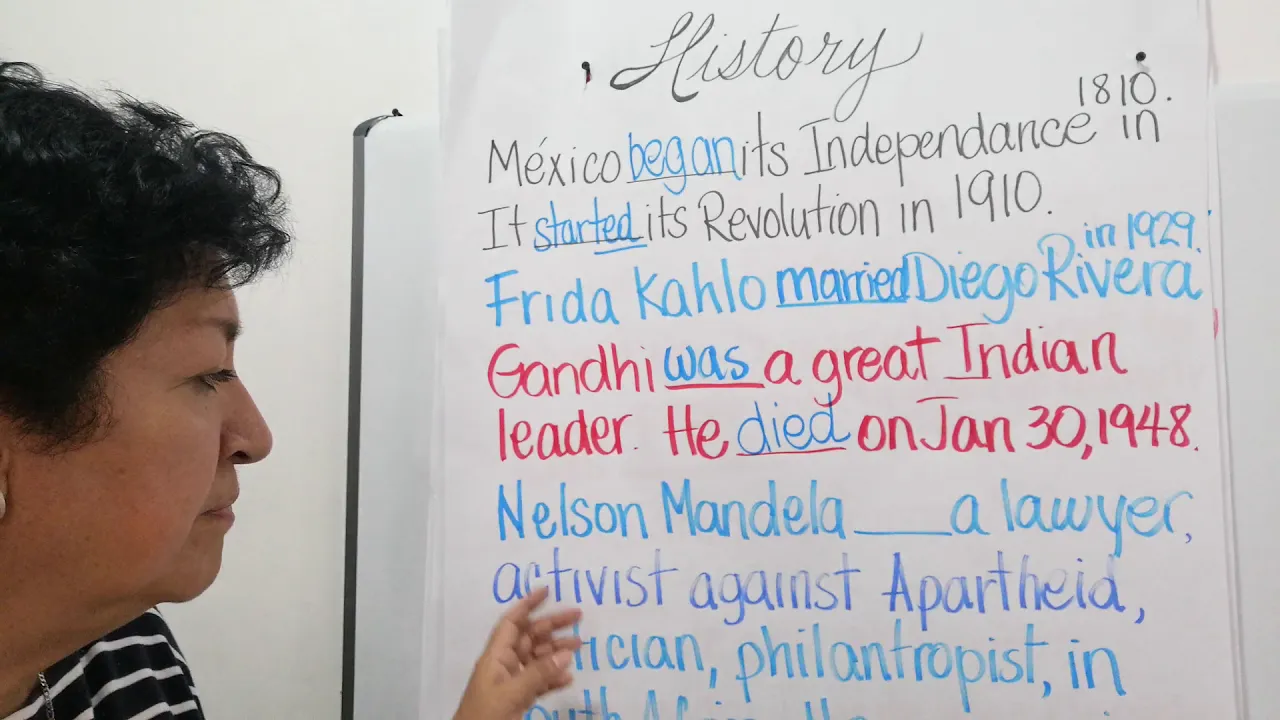 History
1810.
México began its Independance in
It started its Revolution in 1910.
in 1929.
Frida Kahlo married Diego Rivera
Gandhi was a great Indian
leader. He died on Jan 30, 1948.
Nelson Mandela ___ a lawyer,
activist against Apartheid,
tician, philantropist, in